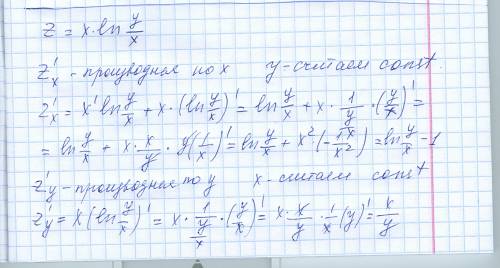 z = x · ln y/x
z'x - производная по x y - считаем const.
z'x = x' ln y/x + x · (ln y/x)' = ln y/x + x · 1/(y/x) · (y/x)' =
= ln y/x + x · x/y · y(1/x)' = ln y/x + x² (-1/x²) = ln y/x - 1
z'y - производная по y x - считаем const
z'y = x (ln y/x)' = x · 1/(y/x) · (y/x)' = x · x/y · 1/x (y)' = x/y